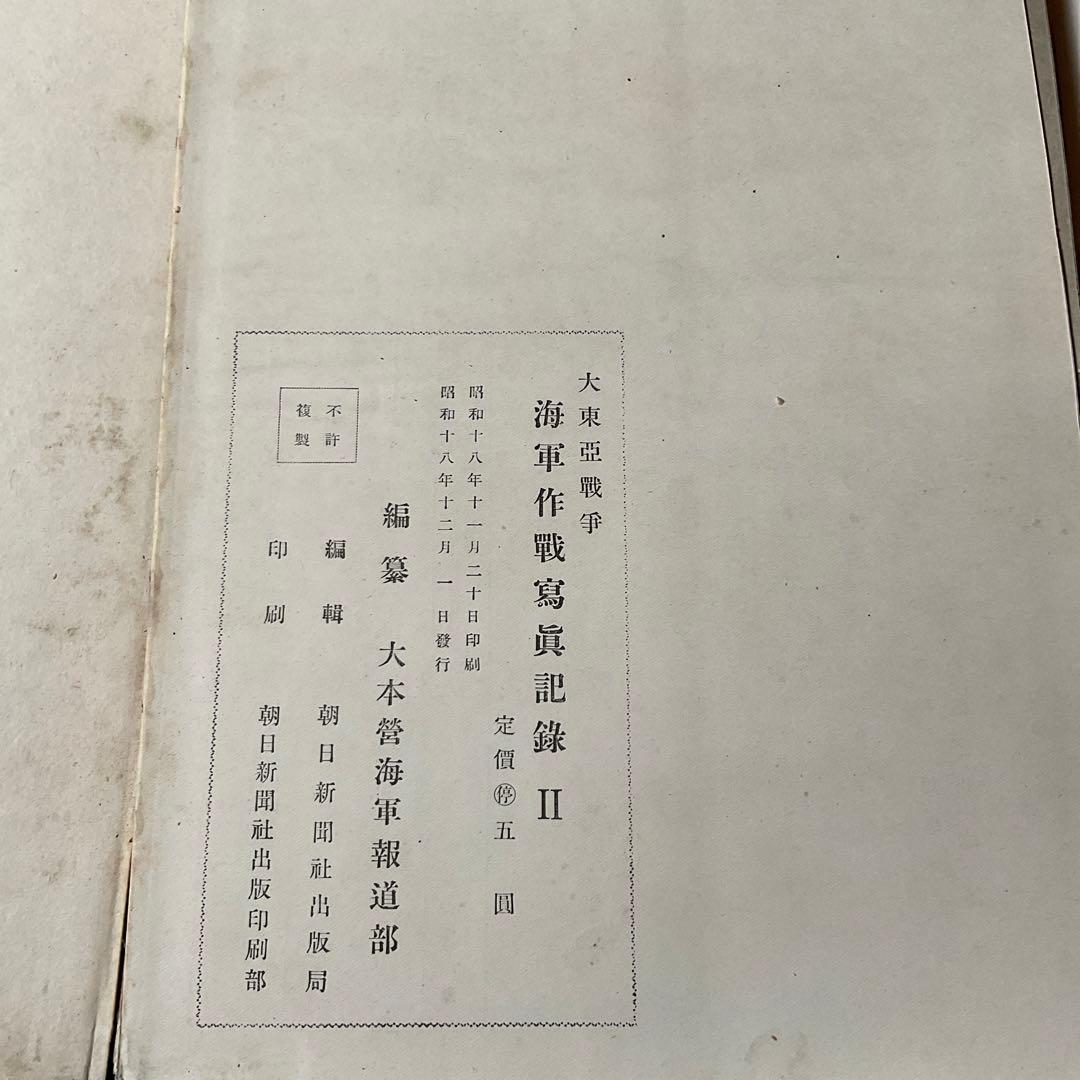 大東亞戰爭
海軍作戰寫眞記錄 II
定價㊡五圓
昭和十八年十一月二十日印刷
昭和十八年十二月一日發行
編纂 大本營海軍報道部
不許
複製
編輯 朝日新聞社出版局
印刷 朝日新聞社出版印刷部